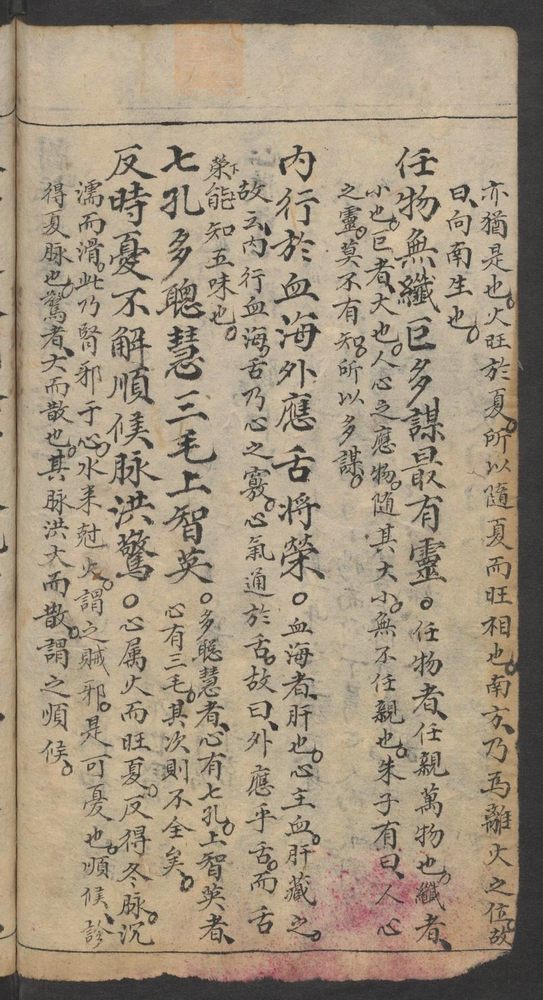 亦猶是也火旺於夏所以隨夏而旺相也南方乃為離火之位故
曰向南生也
任物無纖巨多謀最有靈。任物者任親萬物也纖者
小也巨者大也人心之應物隨其大小無不任親也朱子有曰人心
之靈莫不有知所以多謀
内行於血海外應舌將榮。血海者肝也心主血肝藏之
故云内行血海舌乃心之竅心氣通於舌故曰外應乎舌而舌
榮能知五味也
七孔多聰慧三毛上智英。多聰慧者心有七孔上智英者
心有三毛其次則不全矣
反時憂不解順候脉洪驚。心属火而旺夏反得冬脉沉
濡而滑此乃腎邪于心水来尅火謂之賊邪是可憂也順候診
得夏脉也驚者大而散也其脉洪大而散謂之順候